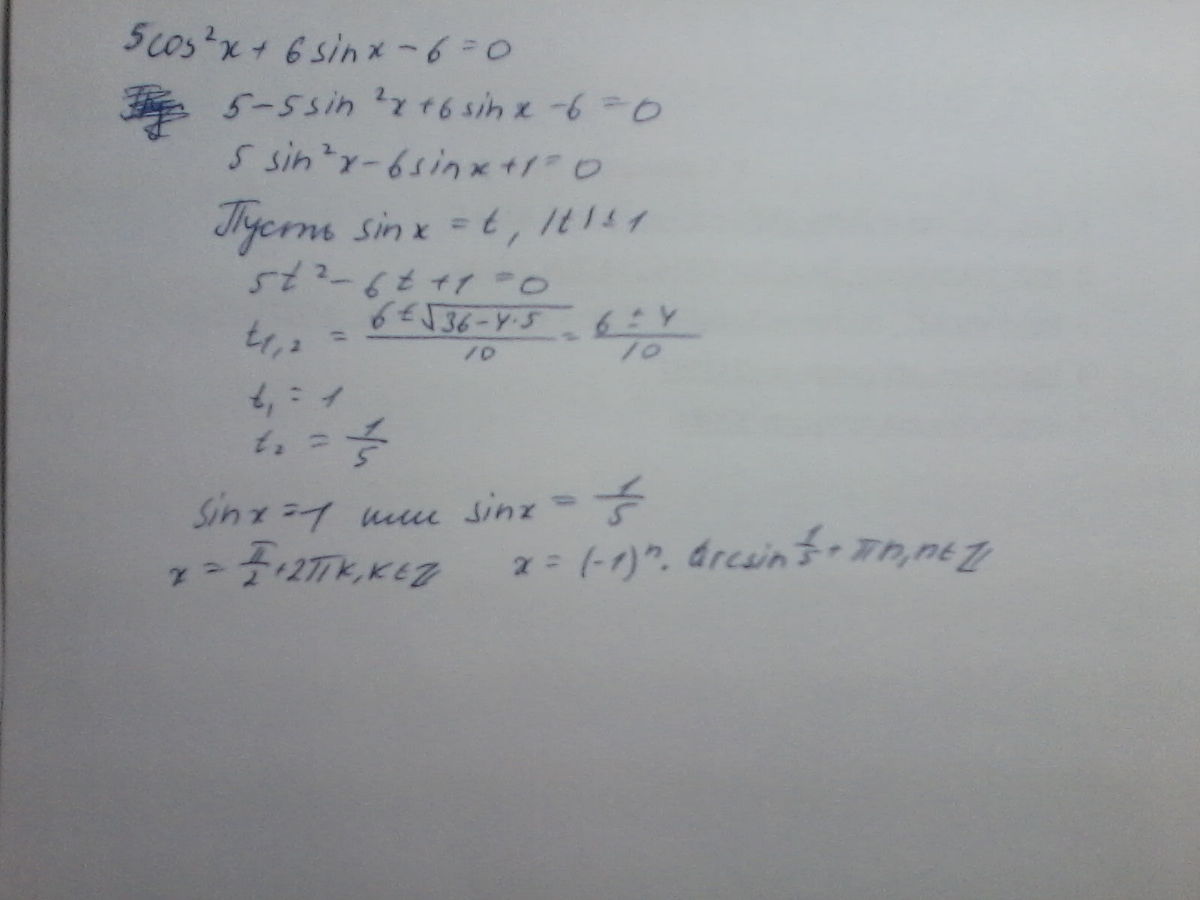 5cos²x + 6 sinx - 6 = 0
5 - 5sin²x + 6sinx - 6 = 0
5 sin²x - 6sinx + 1 = 0
Пусть sinx = t, |t| ≤ 1
5t² - 6t + 1 = 0
t₁,₂ = (6 ± √(36 - 4·5))/10 = (6 ± 4)/10
t₁ = 1
t₂ = 1/5
sinx = 1 или sinx = 1/5
x = π/2 + 2πk, k ∈ ℤ x = (-1)ⁿ · arcsin 1/5 + πn, n ∈ ℤ